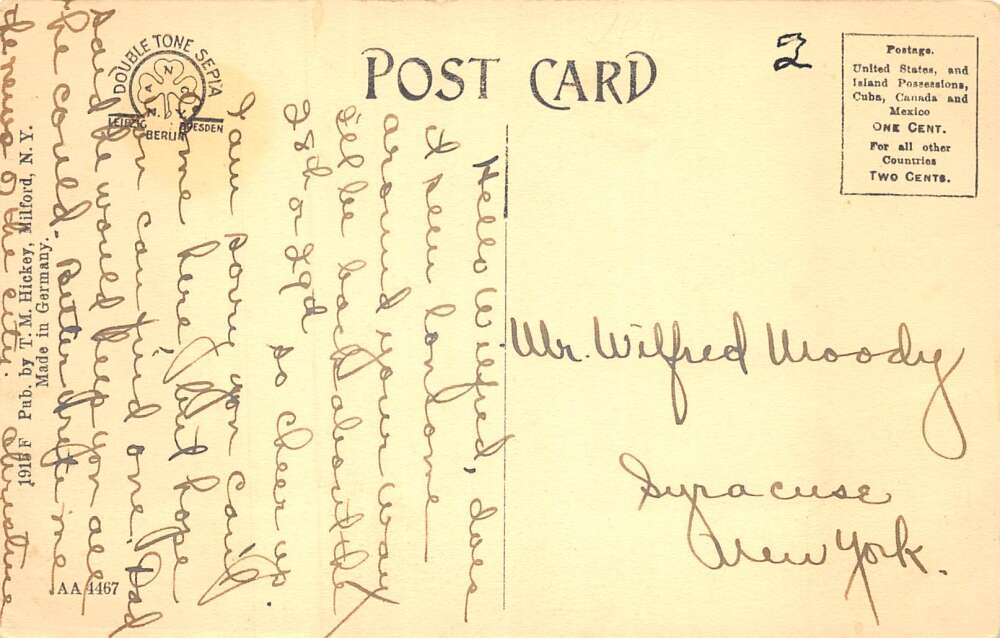 POST CARD
DOUBLE TONE SEPIA
N
A
N.
LEIPZIG
DRESDEN
BERLIN
2
Postage.
United States, and
Island Possessions,
Cuba, Canada and
Mexico
ONE CENT.
For all other
Countries
TWO CENTS.
Hello Wilfred, does
it seem lonsome
around your way
I'll be back about the
28th or 29th
so cheer up.
I am sorry you can't
come here, but hope
you can find one. Dad
said he would help you all
he could. Better drop me
the name of the city. Christine
Mr. Wilfred Moody
Syracuse
New York.
191 F Pub. by T. M. Hickey, Milford, N. Y.
Made in Germany.
AA 4467